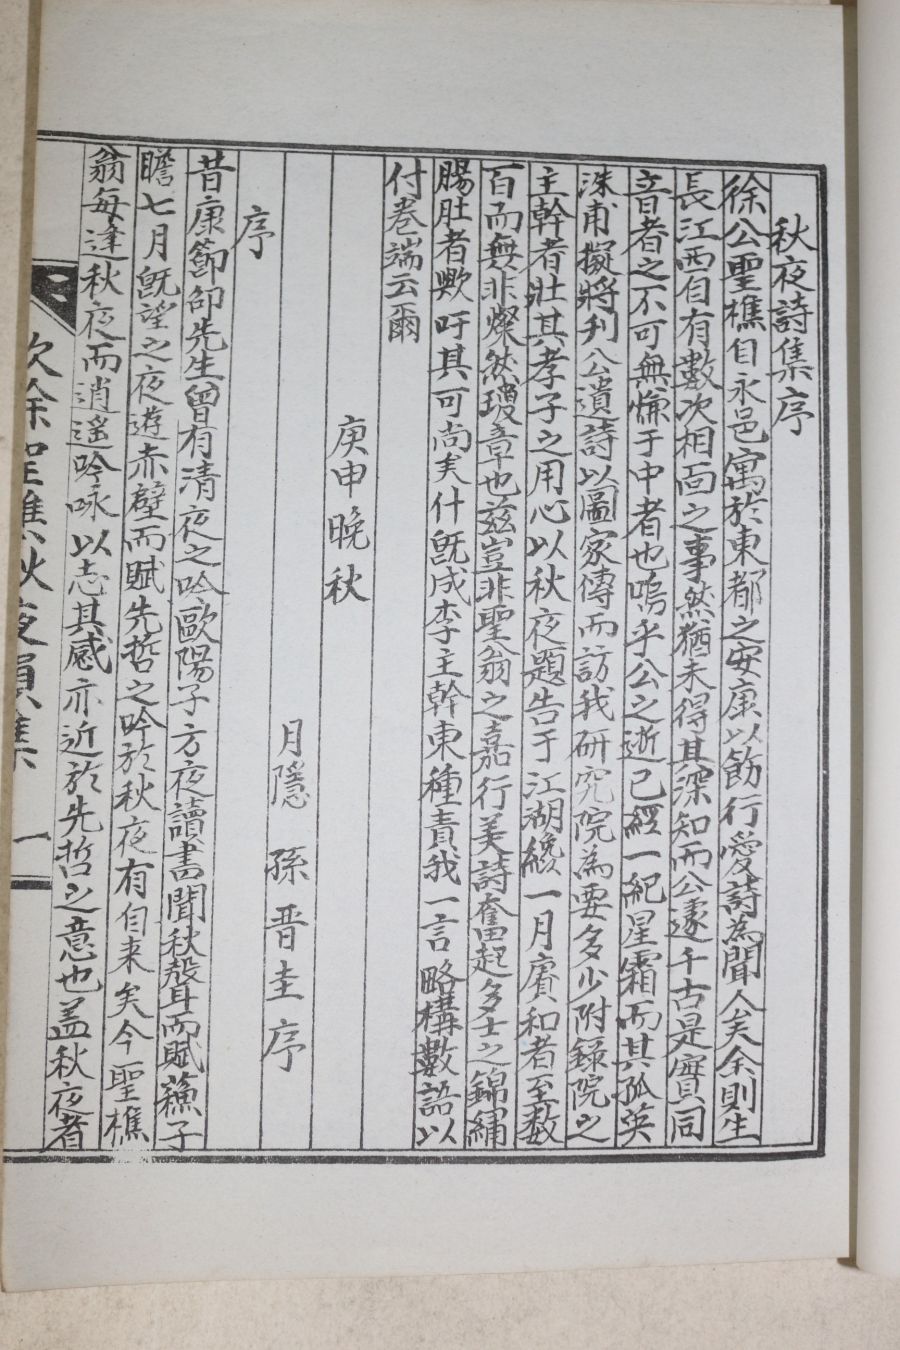 秋夜詩集序
徐公聖樵自永邑寓於東都之安康以飭行愛詩為聞人矣余則生
長江西自有數次相面之事然猶未得其深知而公遂千古是實同
音者之不可無慊于中者也嗚乎公之逝已經一紀星霜而其孤英
洙甫擬將刋公遺詩以圖家傳而訪我研究院為要多少附錄院之
主幹者壯其孝子之用心以秋夜題告于江湖纔一月賡和者至数
百而無非燦然瓊章也玆豈非聖翁之嘉行美詩奮起多士之錦繡
腸肚者歟吁其可尚矣什旣成李主幹東種責我一言略構數語以
付卷端云爾
庚申晚秋
月隱 孫晋圭序
序
昔康節邵先生曾有清夜之吟歐陽子方夜讀書聞秋聲而賦蘓子
瞻七月旣望之夜遊赤壁而賦先哲之吟於秋夜有自来矣今聖樵
翁每逢秋夜而逍遥吟咏以志其感亦近於先哲之意也盖秋夜者
徐聖樵秋夜韻集 一